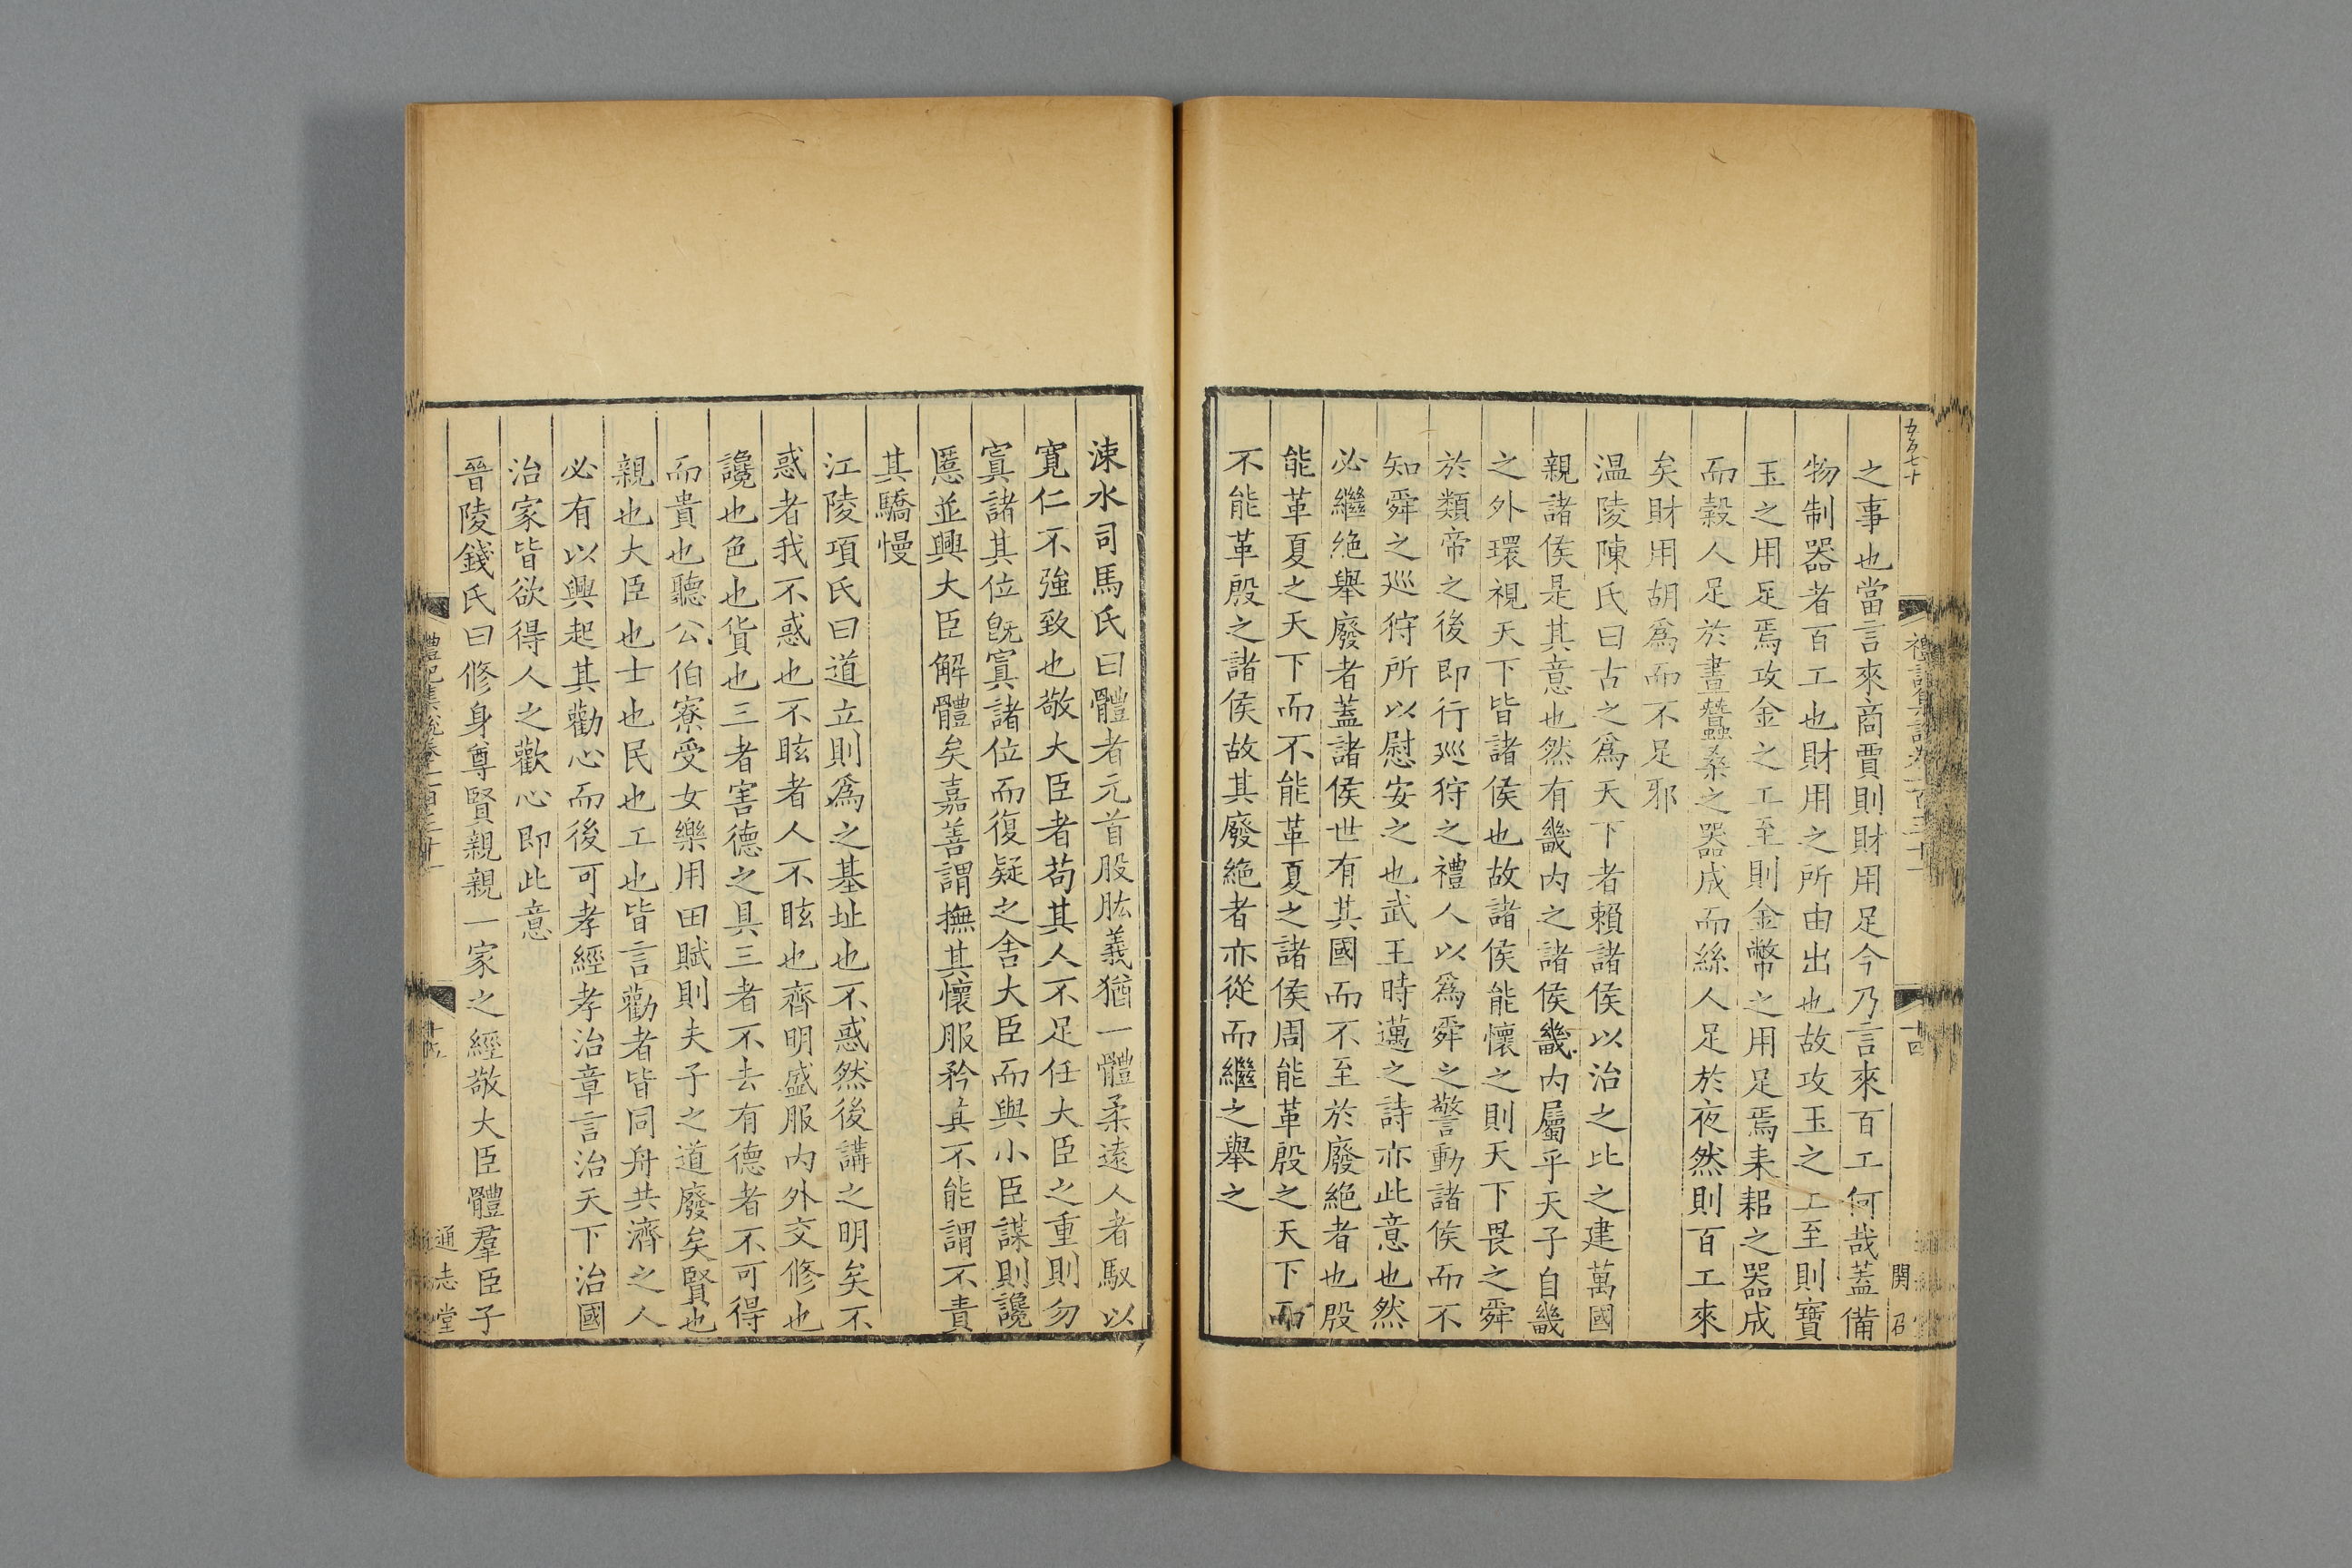 五百七十
之事也當言來商賈則財用足今乃言來百工何哉蓋備
物制器者百工也財用之所由出也故攻玉之工至則寶
玉之用足焉攻金之工至則金幣之用足焉耒耜之器成
而穀人足於晝蠶桑之器成而絲人足於夜然則百工來
矣財用胡爲而不足邪
温陵陳氏曰古之爲天下者賴諸侯以治之比之建萬國
親諸侯是其意也然有畿内之諸侯畿内屬乎天子自畿
之外環視天下皆諸侯也故諸侯能懷之則天下畏之舜
於類帝之後即行廵狩之禮人以爲舜之警動諸侯而不
知舜之廵狩所以慰安之也武王時邁之詩亦此意也然
必繼絶舉廢者蓋諸侯世有其國而不至於廢絶者也殷
能革夏之天下而不能革夏之諸侯周能革殷之天下而
不能革殷之諸侯故其廢絶者亦從而繼之舉之
十四
涑水司馬氏曰體者元首股肱義猶一體柔遠人者馭以
寛仁不強致也敬大臣者苟其人不足任大臣之重則勿
寘諸其位旣寘諸位而復疑之舍大臣而與小臣謀則讒
慝並興大臣解體矣嘉善謂撫其懷服矜其不能謂不責
其驕慢
江陵項氏曰道立則爲之基址也不惑然後講之明矣不
惑者我不惑也不眩者人不眩也齊明盛服内外交修也
讒也色也貨也三者害德之具三者不去有德者不可得
而貴也聽公伯寮受女樂用田賦則夫子之道廢矣賢也
親也大臣也士也民也工也皆言勸者皆同舟共濟之人
必有以興起其勸心而後可孝經孝治章言治天下治國
治家皆欲得人之歡心即此意
晉陵錢氏曰修身尊賢親親一家之經敬大臣體羣臣子
通志堂